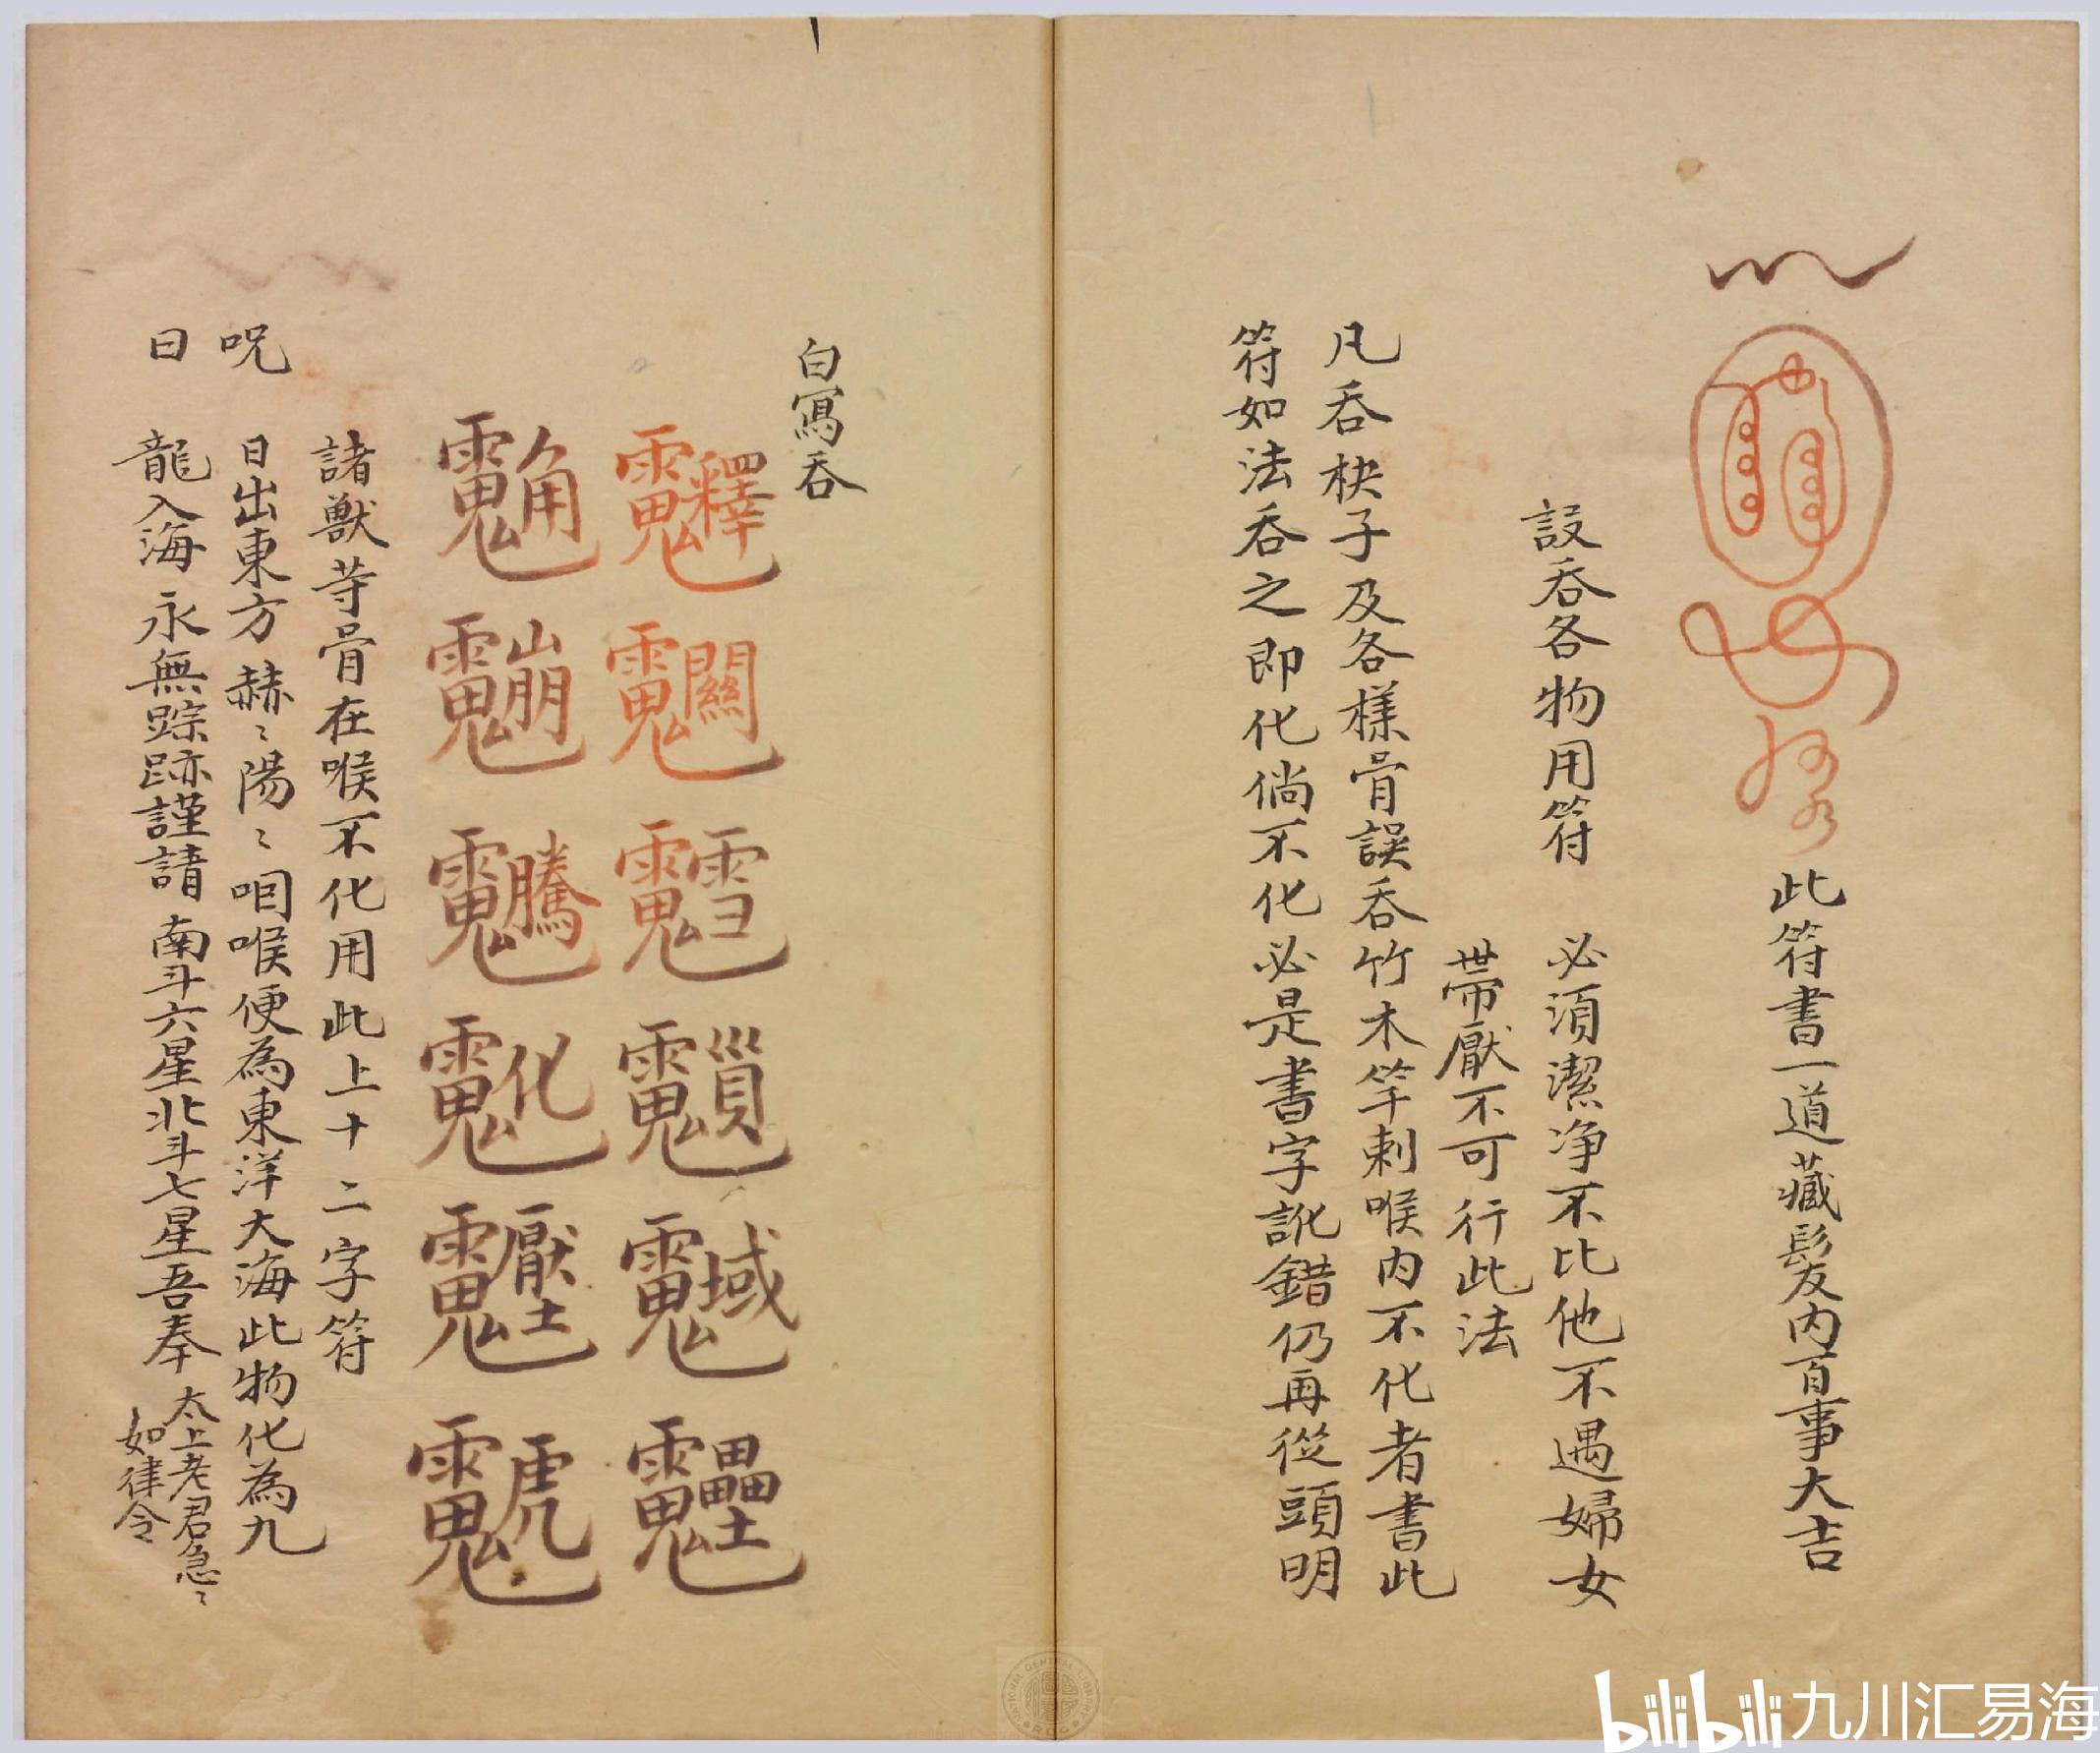 此符書一道藏髮内百事大吉
設吞各物用符　必須潔净不比他不遇婦女
帶厭不可行此法
凡吞柍子及各樣骨誤吞竹木竿刺喉内不化者書此
符如法吞之即化倘不化必是書字訛錯仍再從頭明
白寫吞
諸獸等骨在喉不化用此上十二字符
呪
曰
日出東方赫〻陽〻咽喉便為東洋大海此物化為九
龍入海永無踪跡謹請南斗六星北斗七星吾奉太上老君急〻
如律令
NATIONAL CENTRAL LIBRARY
R.O.C
bilibili 九川汇易海